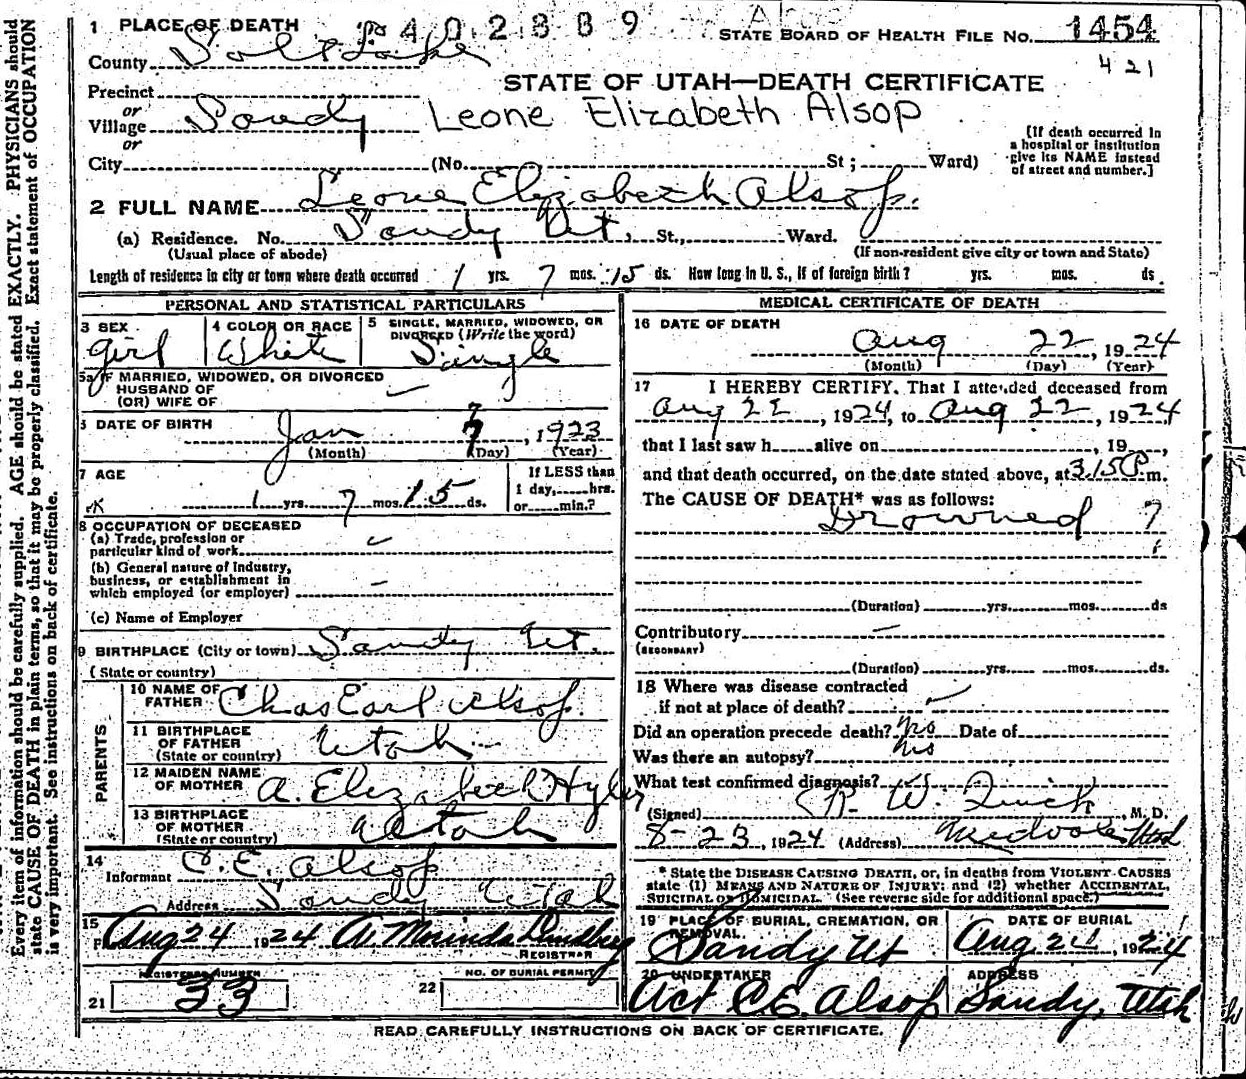 1 PLACE OF DEATH 402889 STATE BOARD OF HEALTH FILE No. 1454
County Salt Lake 421
STATE OF UTAH—DEATH CERTIFICATE
Precinct
or
Village Sandy Leone Elizabeth Alsop
or
City (No. St ; Ward)
(If death occurred in a hospital or institution give its NAME instead of street and number.]
2 FULL NAME Leone Elizabeth Alsop.
(a) Residence. No. Sandy Ut. St., Ward.
(Usual place of abode) (If non-resident give city or town and State)
Length of residence in city or town where death occurred 1 yrs. 7 mos. 15 ds. How long in U. S., if of foreign birth? yrs. mos. ds.
PERSONAL AND STATISTICAL PARTICULARS
3 SEX girl
4 COLOR OR RACE White
5 SINGLE, MARRIED, WIDOWED, OR DIVORCED (Write the word) Single
5a IF MARRIED, WIDOWED, OR DIVORCED
HUSBAND OF
(OR) WIFE OF
6 DATE OF BIRTH
Jan 7, 1923
(Month) (Day) (Year)
7 AGE
1 yrs. 7 mos. 15 ds.
If LESS than
1 day, hrs.
or min.?
8 OCCUPATION OF DECEASED
(a) Trade, profession or
particular kind of work
(b) General nature of Industry,
business, or establishment in
which employed (or employer)
(c) Name of Employer
9 BIRTHPLACE (City or town) Sandy Ut.
(State or country)
PARENTS
10 NAME OF FATHER Chas Earl Alsop.
11 BIRTHPLACE OF FATHER Utah
(State or country)
12 MAIDEN NAME OF MOTHER A. Elizabeth Hyler
13 BIRTHPLACE OF MOTHER Utah
(State or country)
14
Informant C. E. Alsop
Address Sandy Utah
15
Aug 24 1924 A.
REGISTRAR
REGISTERED NUMBER NO. OF BURIAL PERMIT
21 33 22
MEDICAL CERTIFICATE OF DEATH
16 DATE OF DEATH
Aug 22, 1924
(Month) (Day) (Year)
17 I HEREBY CERTIFY, That I attended deceased from
Aug 22, 1924, to Aug 22, 1924
that I last saw h alive on , 19 ,
and that death occurred, on the date stated above, at 3.15 P m.
The CAUSE OF DEATH* was as follows:
Drowned ?
(Duration) yrs. mos. ds
Contributory
(SECONDARY)
(Duration) yrs. mos. ds.
18 Where was disease contracted
if not at place of death?
Did an operation precede death? No Date of
Was there an autopsy? No
What test confirmed diagnosis?
(Signed) R. W. Quick, M. D.
8-23, 1924 (Address) Midvale Utah
* State the DISEASE CAUSING DEATH, or, in deaths from VIOLENT CAUSES
state (1) MEANS AND NATURE OF INJURY; and (2) whether ACCIDENTAL,
SUICIDAL OR HOMICIDAL. (See reverse side for additional space.)
19 PLACE OF BURIAL, CREMATION, OR REMOVAL. Sandy Ut
DATE OF BURIAL Aug 24, 1924
20 UNDERTAKER Act C. E. Alsop
ADDRESS Sandy, Utah
READ CAREFULLY INSTRUCTIONS ON BACK OF CERTIFICATE.
Every item of information should be carefully supplied. AGE should be stated EXACTLY. PHYSICIANS should
state CAUSE OF DEATH in plain terms, so that it may be properly classified. Exact statement of OCCUPATION
is very important. See instructions on back of certificate.